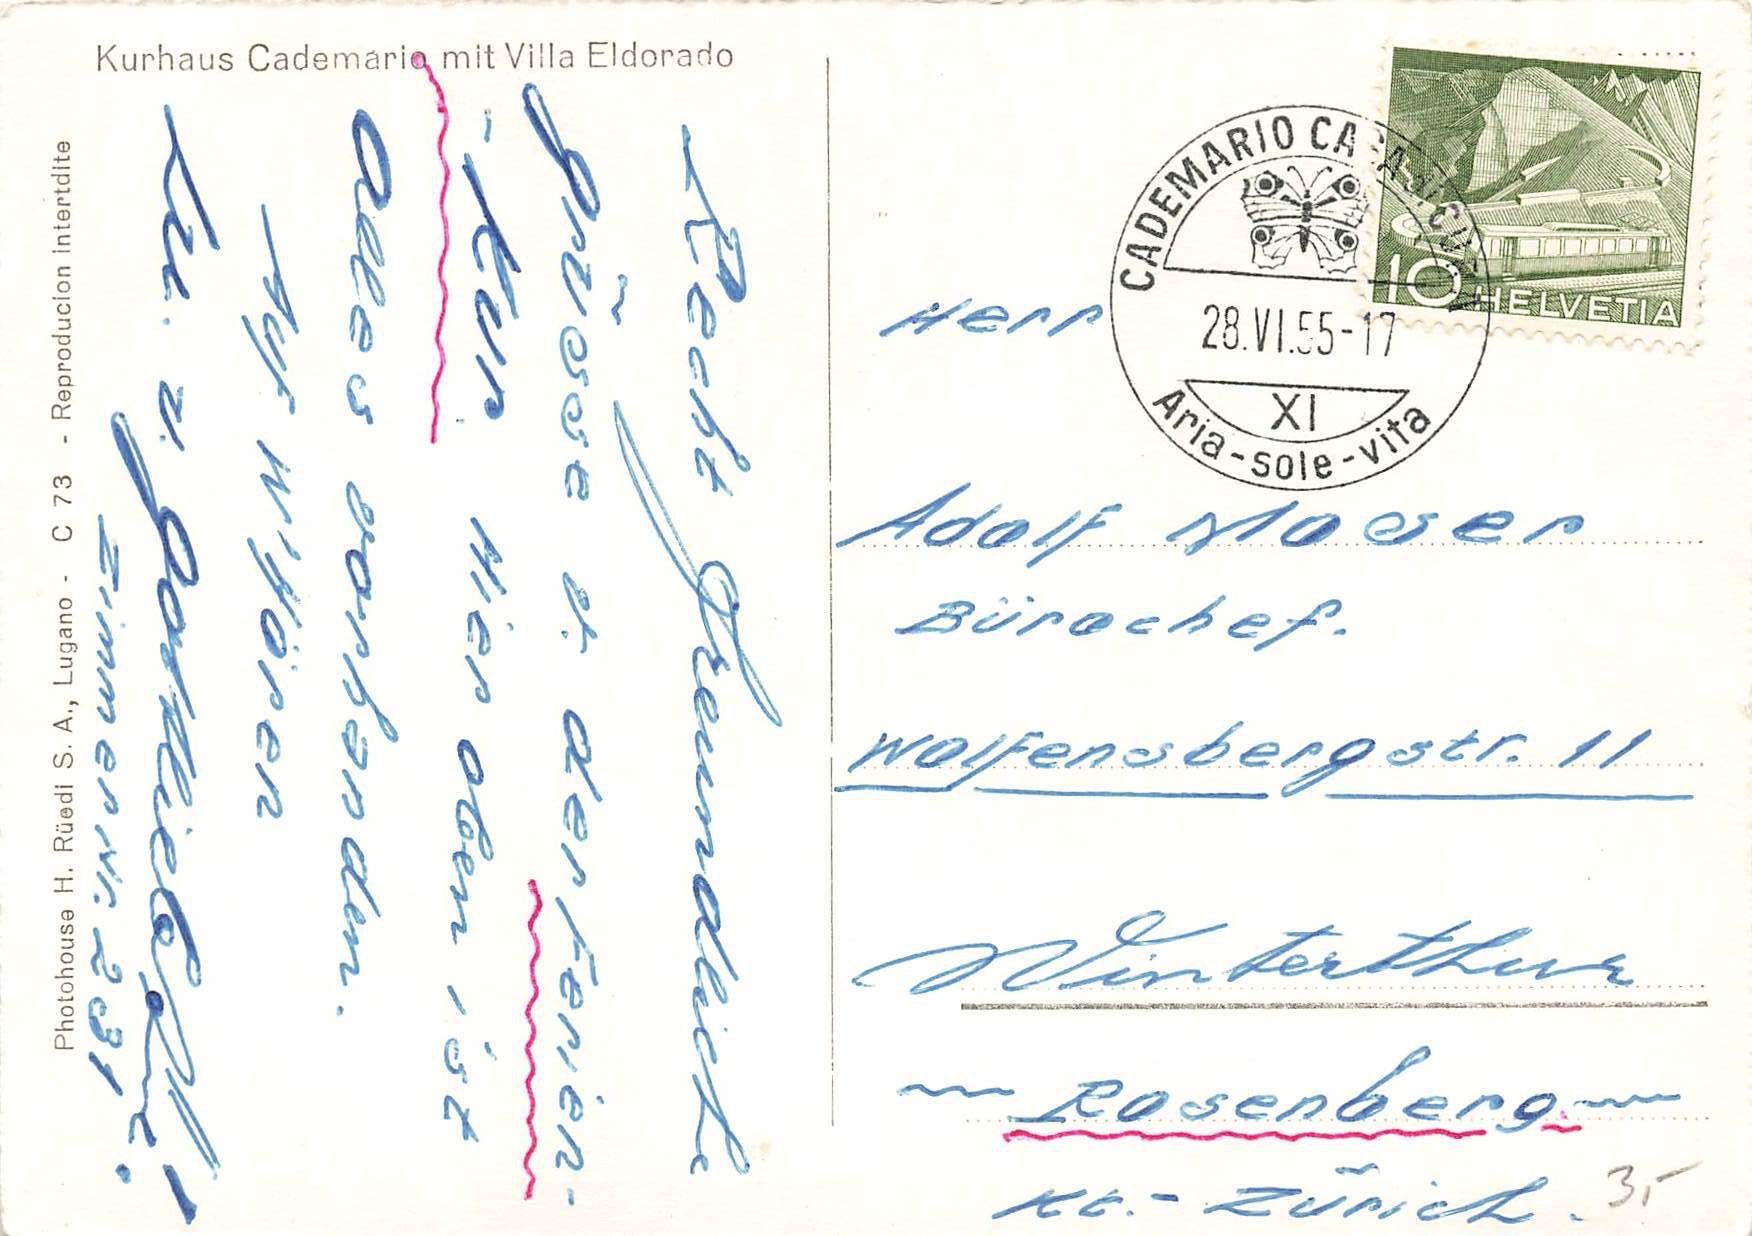 Kurhaus Cademario mit Villa Eldorado
Photohouse H. Rüedi S. A., Lugano - C 73 - Reproducion intertdite
Recht Freundliche
Grüsse a. der Ferien-
-Kur. Hier oben ist
alles vorhanden.
Auf W'Hören
Fr. u.
Zimmer Nr. 231.
CADEMARIO CASA di CURA
28.VI.55-17
XI
Aria-sole-vita
10 HELVETIA
Herr
Adolf Moser
Bürochef.
Wolfensbergstr. 11
Winterthur
Rosenberg
Kt.- Zürich.
3,-